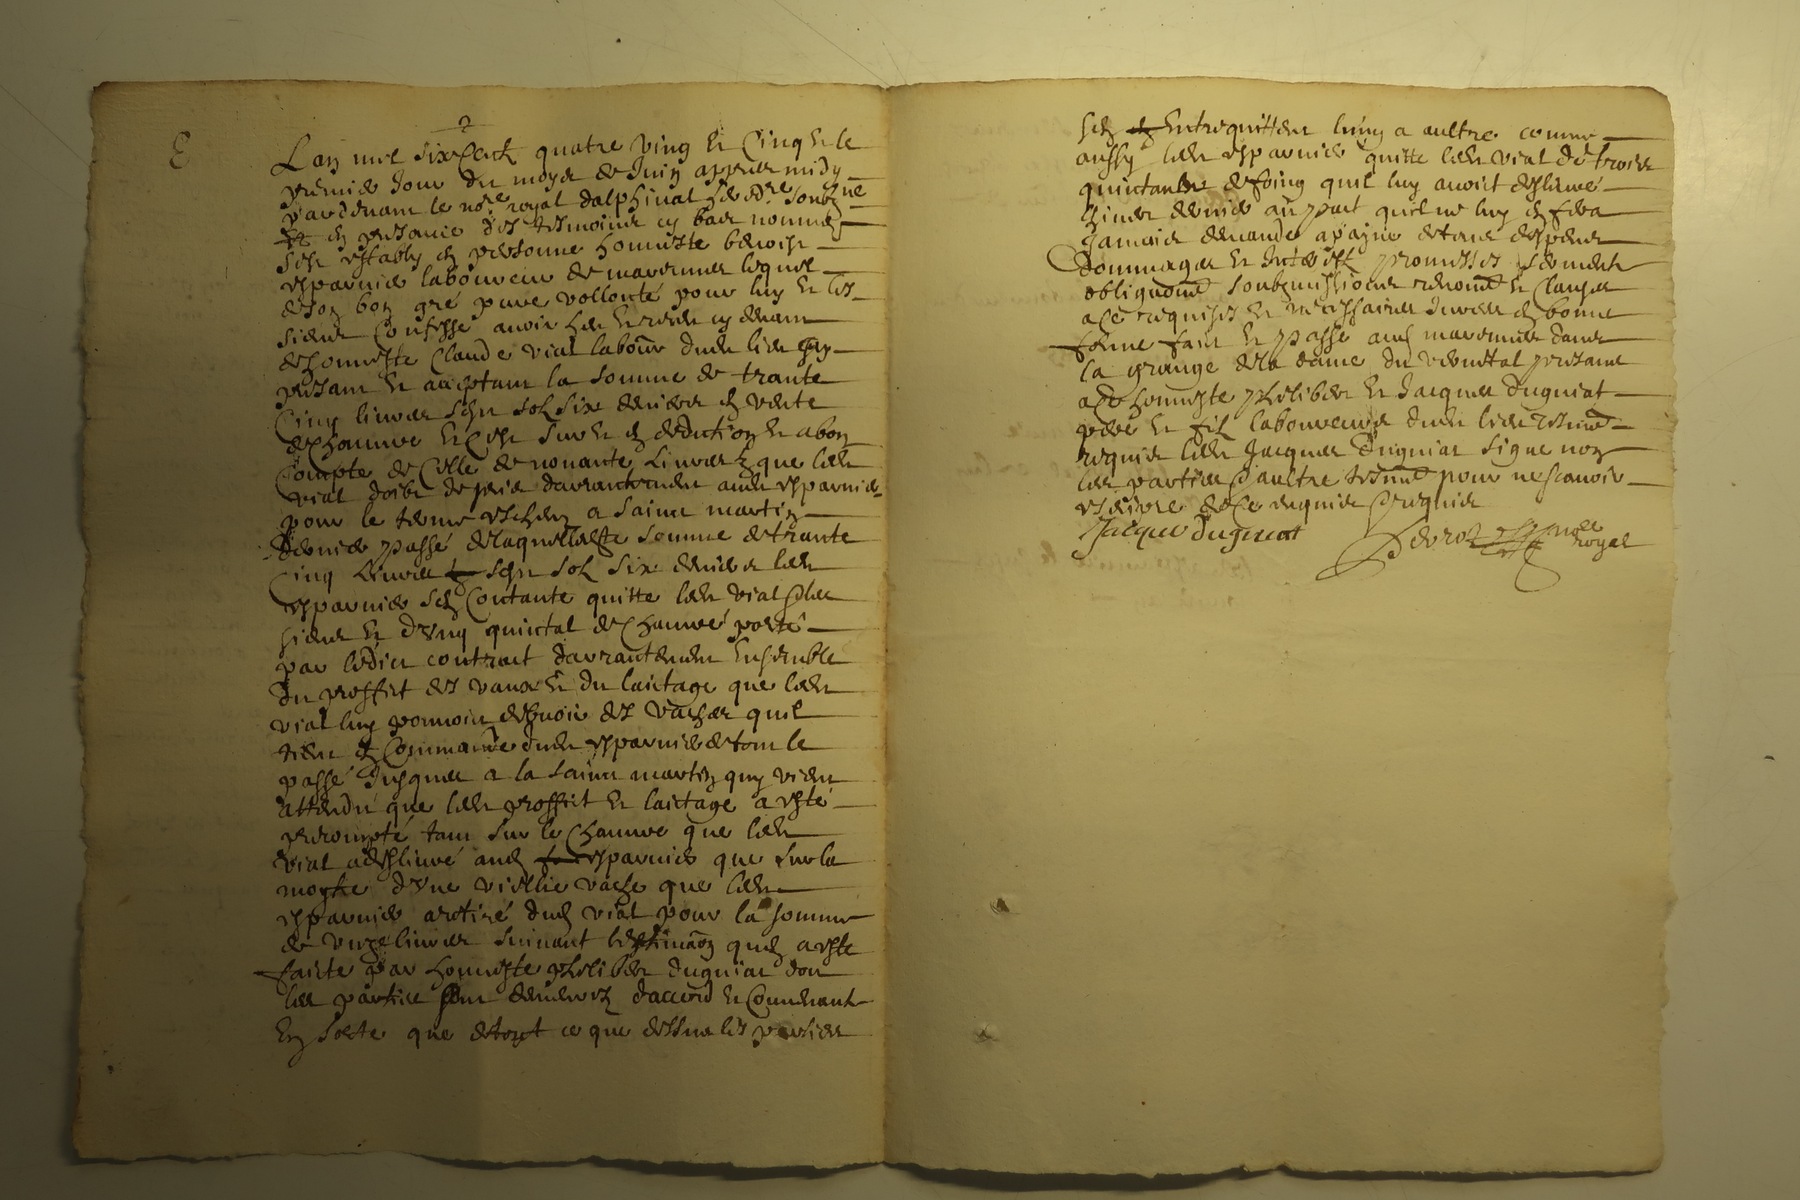 2
E
Lan mil sixcentz quatre ving et cinq et le
premier jour du moys de juin appres midy
pardevant le nore royal dalphinal heredre soubzne
et en presance des tesmoins cy bas nommes
sest estably en personne honneste benoist
esparnier laboureur de marennes lequel
de son bon gré pure vollonté pour luy et les
siens confesse avoir heu et receu cy devant
de honneste Claude vial labour dudt lieu
presant et acceptant la somme de trante
cinq livres sept solz six deniers en vente
de chanvre et ce sur et en deduction et a bon
compte de celle de nonante livres que ledt
vial doibt de prix darrantement audt esparnier
pour le terme escheu a saint martin
dernier passé de laquelle somme de trante
cinq livres sept solz six deniers ledt
esparnier sen contante quitte ledt vial
siens et dung quintal de chanvre porté
par ledict contract darrantement ensemble
du proffit des vaux et du laictage que ledt
vial luy pouvoit debvoir des vaches quil
tient en commande dudt esparnier de tout le
passé jusques a la saint martin quy vient
attendu que ledt proffit et laictage a esté
precompté tant sur le chanvre que ledt
vial a deslivré aud esparnier que sur la
moytie dune viellie vache que ledt
esparnier a retiré dud vial pour la somme
de unze livres suivant lestimaon quen a esté
faicte par honneste philibert duguiat dont
les parties sont demeurez daccord et
en sorte que de tout ce que dessus les parties
sen entrequittent lung a aultre comme
aussy ledt esparnier quitte ledt vial de trois
quintaulx de foing quil luy avoit deslivré
hiver dernier au pact quil ne luy en fera
jamais demande a payne de tous despens
dommages et interestz promesses serment
obligaons soubzmissions renonons et clauses
a ce requises et necessaires en bonne
forme fait et passé aud marennes dans
la grange de la dame du presant
a ce honneste philibert et Jacques duguiat
pere et filz laboureurs dudt lieu tesmoins
requis ledt Jacques duguiat signe non
les parties aultre tesmoin pour ne scavoir
escripre de ce requis
Jacque duguiat
royal